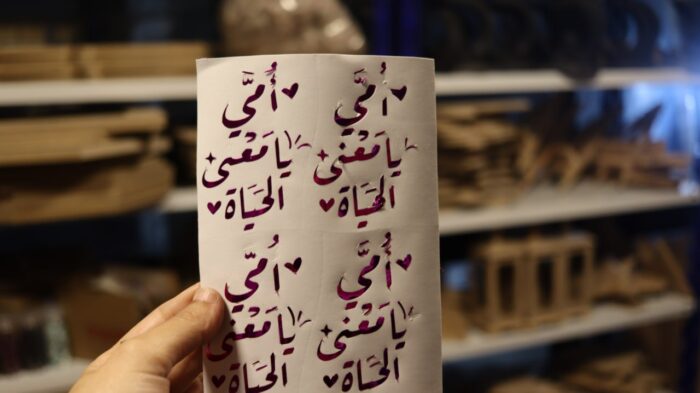 أُمّي
يا مَعْنى
الحَيَاة
أُمّي
يا مَعْنى
الحَيَاة
أُمّي
يا مَعْنى
الحَيَاة
أُمّي
يا مَعْنى
الحَيَاة